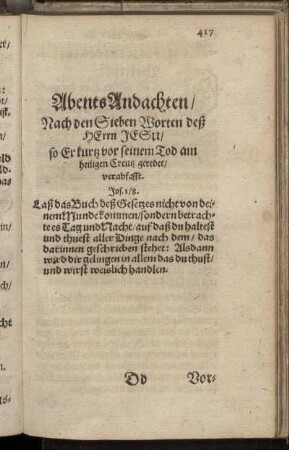 417
Abents Andachten/
Nach den Sieben Worten deß
HErrn JESU/
so Er kurtz vor seinem Tod am
heiligen Creutz geredet/
verabfasst.
Jos. 1/8.
Laß das Buch deß Gesetzes nicht von dei-
nem Munde kommen/ sondern betrach-
te es Tag und Nacht/ auf daß du haltest
und thuest aller Dinge nach dem/ das
darinnen geschrieben stehet: Alsdann
wird dir gelingen in allem das du thust/
und wirst weislich handlen.
Dd Vor-